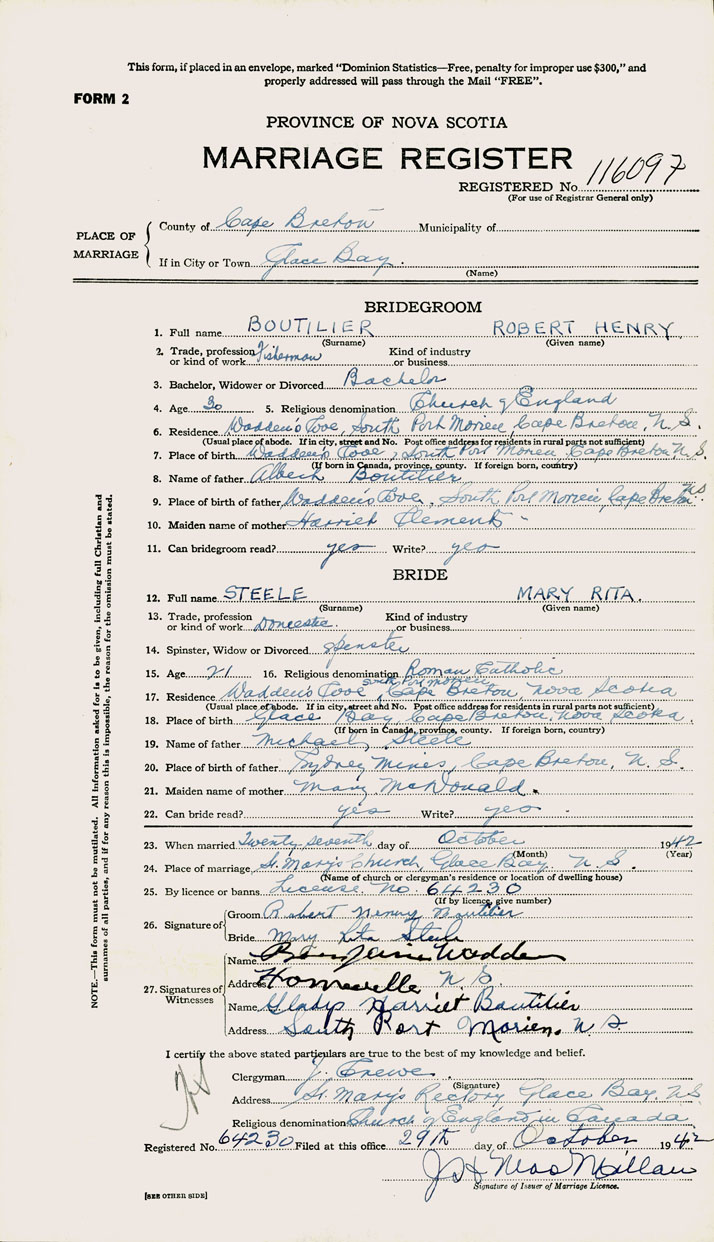 This form, if placed in an envelope, marked "Dominion Statistics—Free, penalty for improper use $300," and
properly addressed will pass through the Mail "FREE".
FORM 2
PROVINCE OF NOVA SCOTIA
MARRIAGE REGISTER
REGISTERED No. 116097
(For use of Registrar General only)
PLACE OF MARRIAGE
County of Cape Breton Municipality of
If in City or Town Glace Bay.
(Name)
BRIDEGROOM
1. Full name BOUTILIER ROBERT HENRY
(Surname) (Given name)
2. Trade, profession or kind of work Fisherman Kind of industry or business
3. Bachelor, Widower or Divorced Bachelor
4. Age 30 5. Religious denomination Church of England
6. Residence Wadden's Cove, South Port Morien, Cape Breton, N. S.
(Usual place of abode. If in city, street and No. Post office address for residents in rural parts not sufficient)
7. Place of birth Wadden's Cove, South Port Morien, Cape Breton N. S.
(If born in Canada, province, county. If foreign born, country)
8. Name of father Albert Boutilier
9. Place of birth of father Wadden's Cove, South Port Morien, Cape Breton N.S.
10. Maiden name of mother Harriet Clements
11. Can bridegroom read? yes Write? yes
BRIDE
12. Full name STEELE MARY RITA.
(Surname) (Given name)
13. Trade, profession or kind of work Domestic Kind of industry or business
14. Spinster, Widow or Divorced Spinster
15. Age 21 16. Religious denomination Roman Catholic
South Port Morien
17. Residence Wadden's Cove, Cape Breton, Nova Scotia
(Usual place of abode. If in city, street and No. Post office address for residents in rural parts not sufficient)
18. Place of birth Glace Bay, Cape Breton, Nova Scotia.
(If born in Canada, province, county. If foreign born, country)
19. Name of father Michael Steele
20. Place of birth of father Sydney Mines, Cape Breton, N. S.
21. Maiden name of mother Mary McDonald.
22. Can bride read? yes Write? yes
23. When married Twenty seventh day of October 1942
(Month) (Year)
24. Place of marriage St. Mary's Church, Glace Bay. N. S.
(Name of church or clergyman's residence or location of dwelling house)
25. By licence or banns License No. 64230
(If by licence, give number)
26. Signature of
Groom Robert Henry Boutilier
Bride Mary Rita Steele
27. Signatures of Witnesses
Name Benjamin Wadden
Address Homeville N S
Name Gladys Harriet Boutilier
Address South Port Morien, N S
I certify the above stated particulars are true to the best of my knowledge and belief.
Clergyman J. Crewe.
(Signature)
Address St. Mary's Rectory Glace Bay. N.S.
Religious denomination Church of England in Canada
Registered No. 64230 Filed at this office 29th day of October 1942
J H MacMillan
Signature of Issuer of Marriage Licence.
[SEE OTHER SIDE]
NOTE.—This form must not be mutilated. All information asked for is to be given, including full Christian and
surnames of all parties, and if for any reason this is impossible, the reason for the omission must be stated.